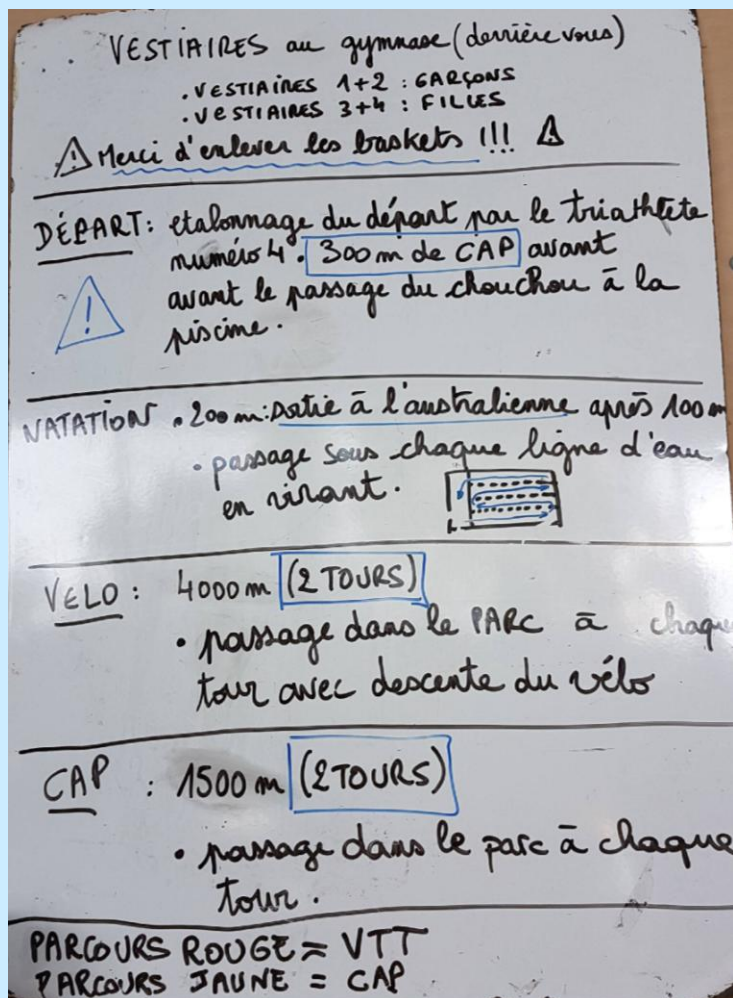 VESTIAIRES au gymnase (derrière vous)
. VESTIAIRES 1+2 : GARÇONS
. VESTIAIRES 3+4 : FILLES
⚠ Merci d'enlever les baskets !!! ⚠
DÉPART : etalonnage du départ par le triathlète
numéro 4 . 300 m de CAP avant
avant le passage du chouchou à la
piscine .
!
NATATION . 200 m : Sortie à l'australienne après 100 m
. passage sous chaque ligne d'eau
en virant .
VELO : 4000 m (2 TOURS)
. passage dans le PARC à chaque
tour avec descente du vélo
CAP : 1500 m (2 TOURS)
. passage dans le parc à chaque
tour .
PARCOURS ROUGE = VTT
PARCOURS JAUNE = CAP